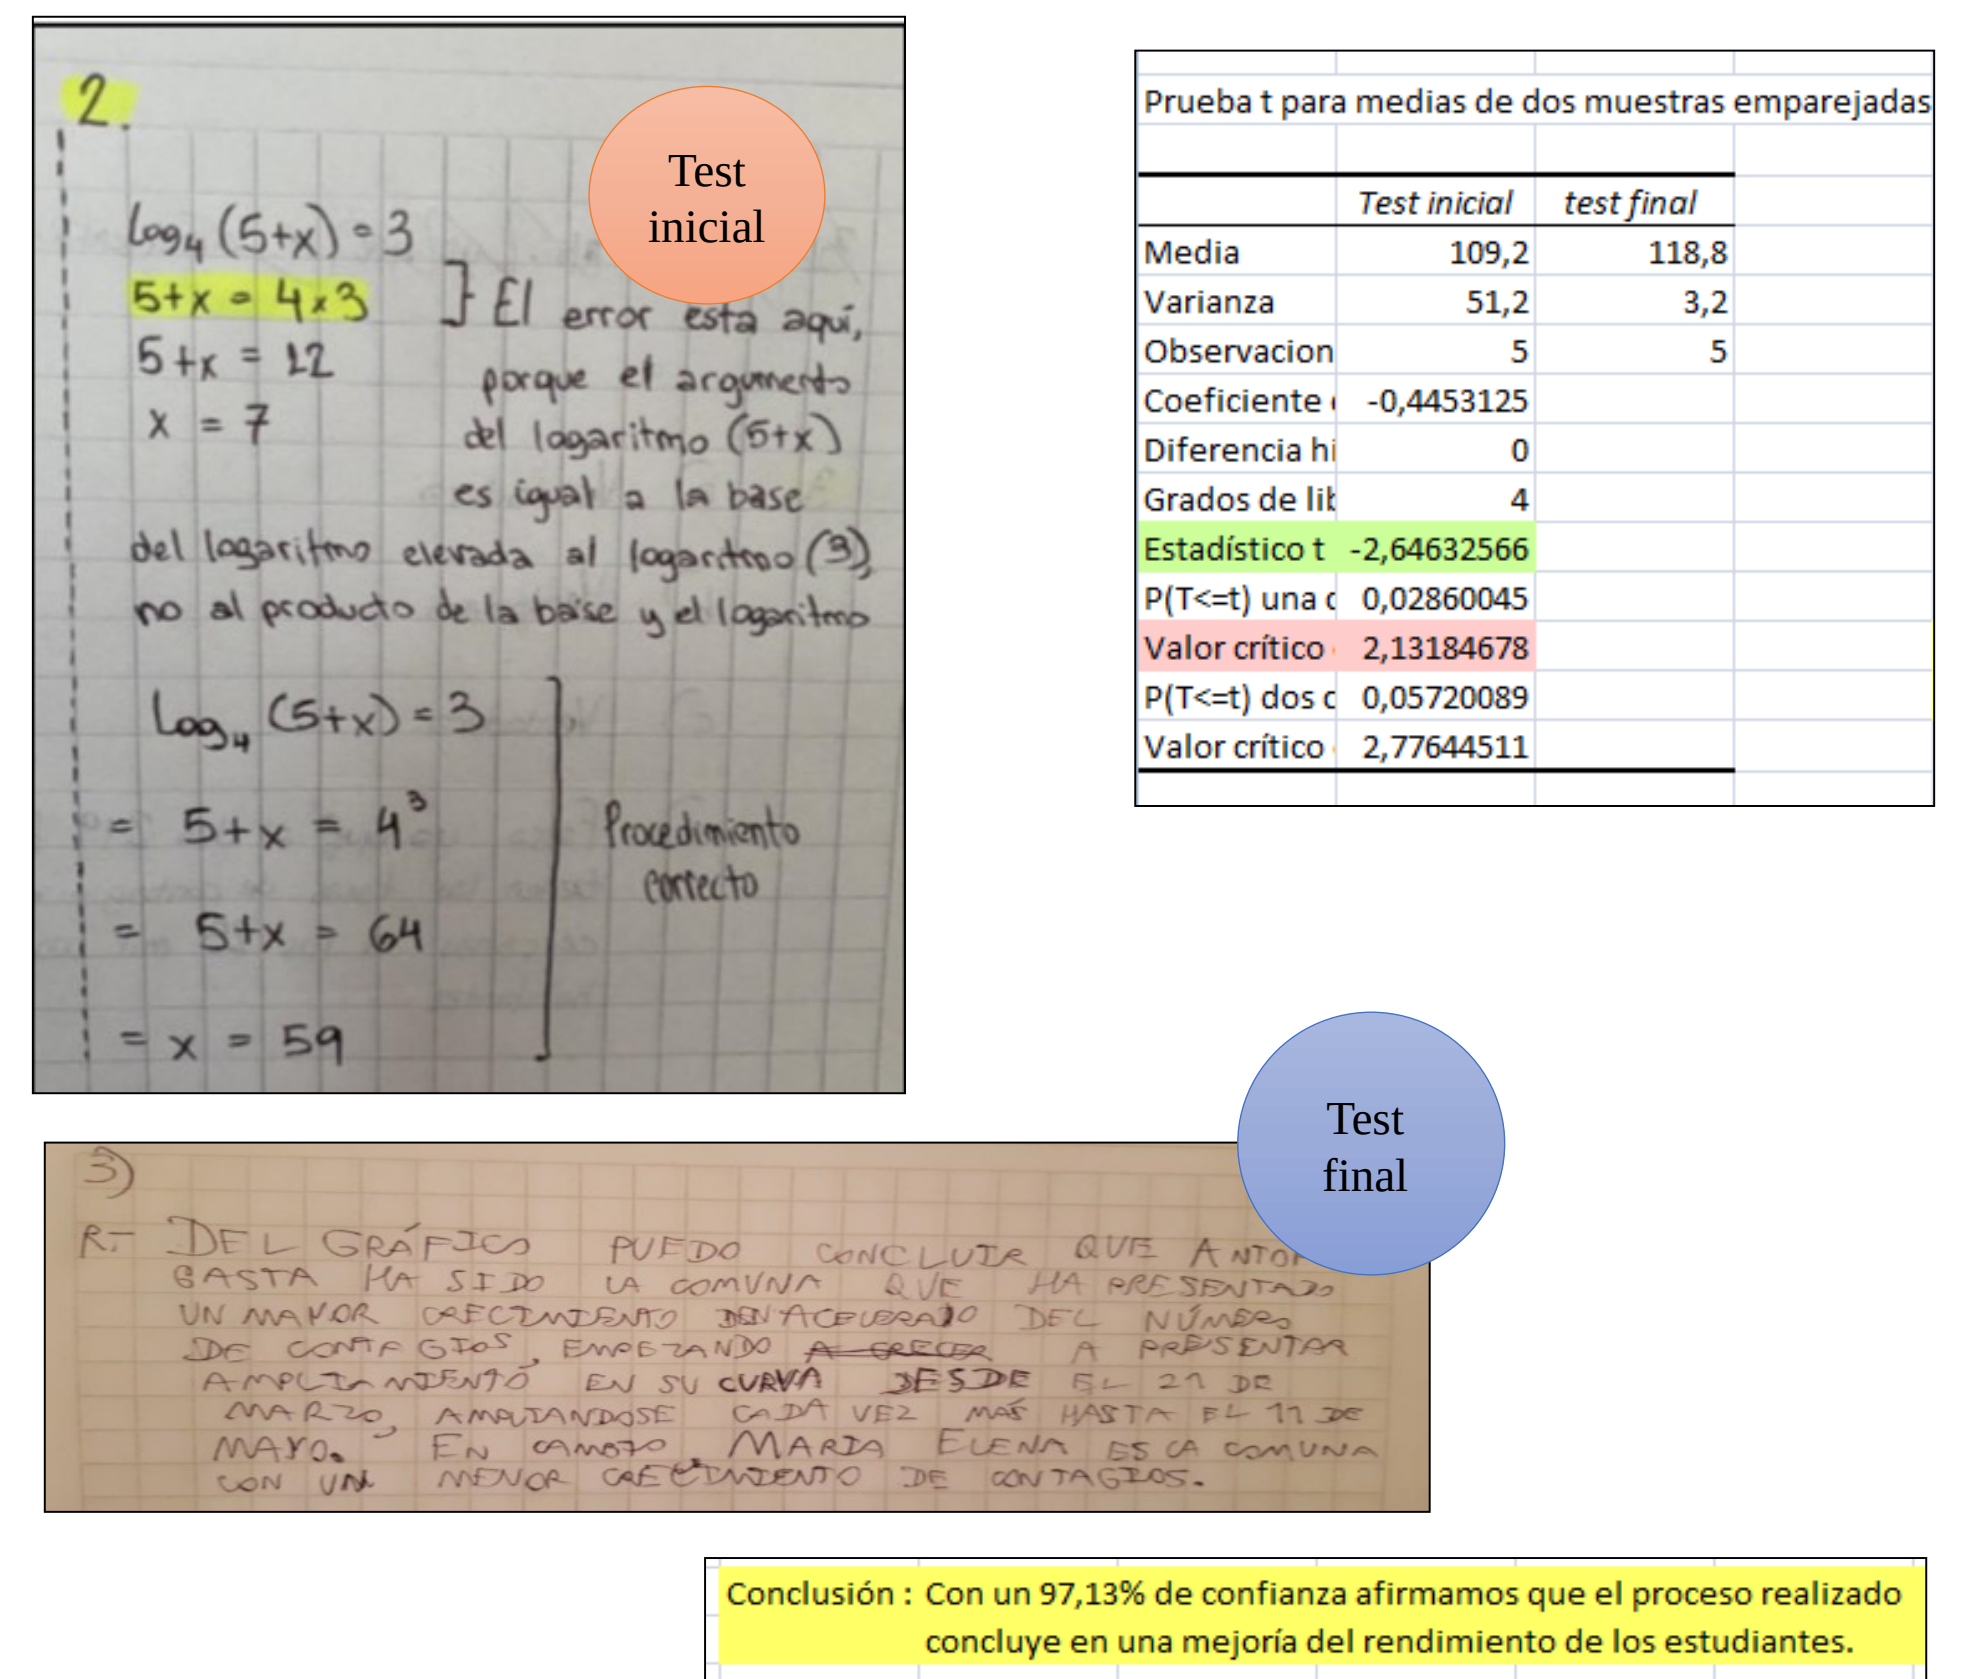 2.
Test
inicial
log4 (5+x) = 3
5+x = 4x3
5+x = 12
x = 7
} El error esta aquí,
porque el argumento
del logaritmo (5+x)
es igual a la base
del logaritmo elevada al logaritmo (3),
no al producto de la base y el logaritmo
Log4 (5+x) = 3
= 5+x = 4³
= 5+x = 64
= x = 59
Procedimiento
correcto
Prueba t para medias de dos muestras emparejadas
Test inicial test final
Media 109,2 118,8
Varianza 51,2 3,2
Observacion 5 5
Coeficiente -0,4453125
Diferencia hi 0
Grados de lib 4
Estadístico t -2,64632566
P(T<=t) una c 0,02860045
Valor crítico 2,13184678
P(T<=t) dos c 0,05720089
Valor crítico 2,77644511
Test
final
3)
R.- DEL GRÁFICO PUEDO CONCLUIR QUE ANTOF
GASTA HA SIDO LA COMUNA QUE HA PRESENTADO
UN MAYOR CRECIMIENTO DEL NÚMERO
DE CONTAGIOS, EMPEZANDO A CRECER A PRESENTAR
AMPLIAMIENTO EN SU CURVA DESDE EL 21 DE
MARZO, AMPLIANDOSE CADA VEZ MÁS HASTA EL 11 DE
MAYO. EN CAMBIO, MARIA ELENA ES LA COMUNA
CON UN MENOR CRECIMIENTO DE CONTAGIOS.
Conclusión : Con un 97,13% de confianza afirmamos que el proceso realizado
concluye en una mejoría del rendimiento de los estudiantes.